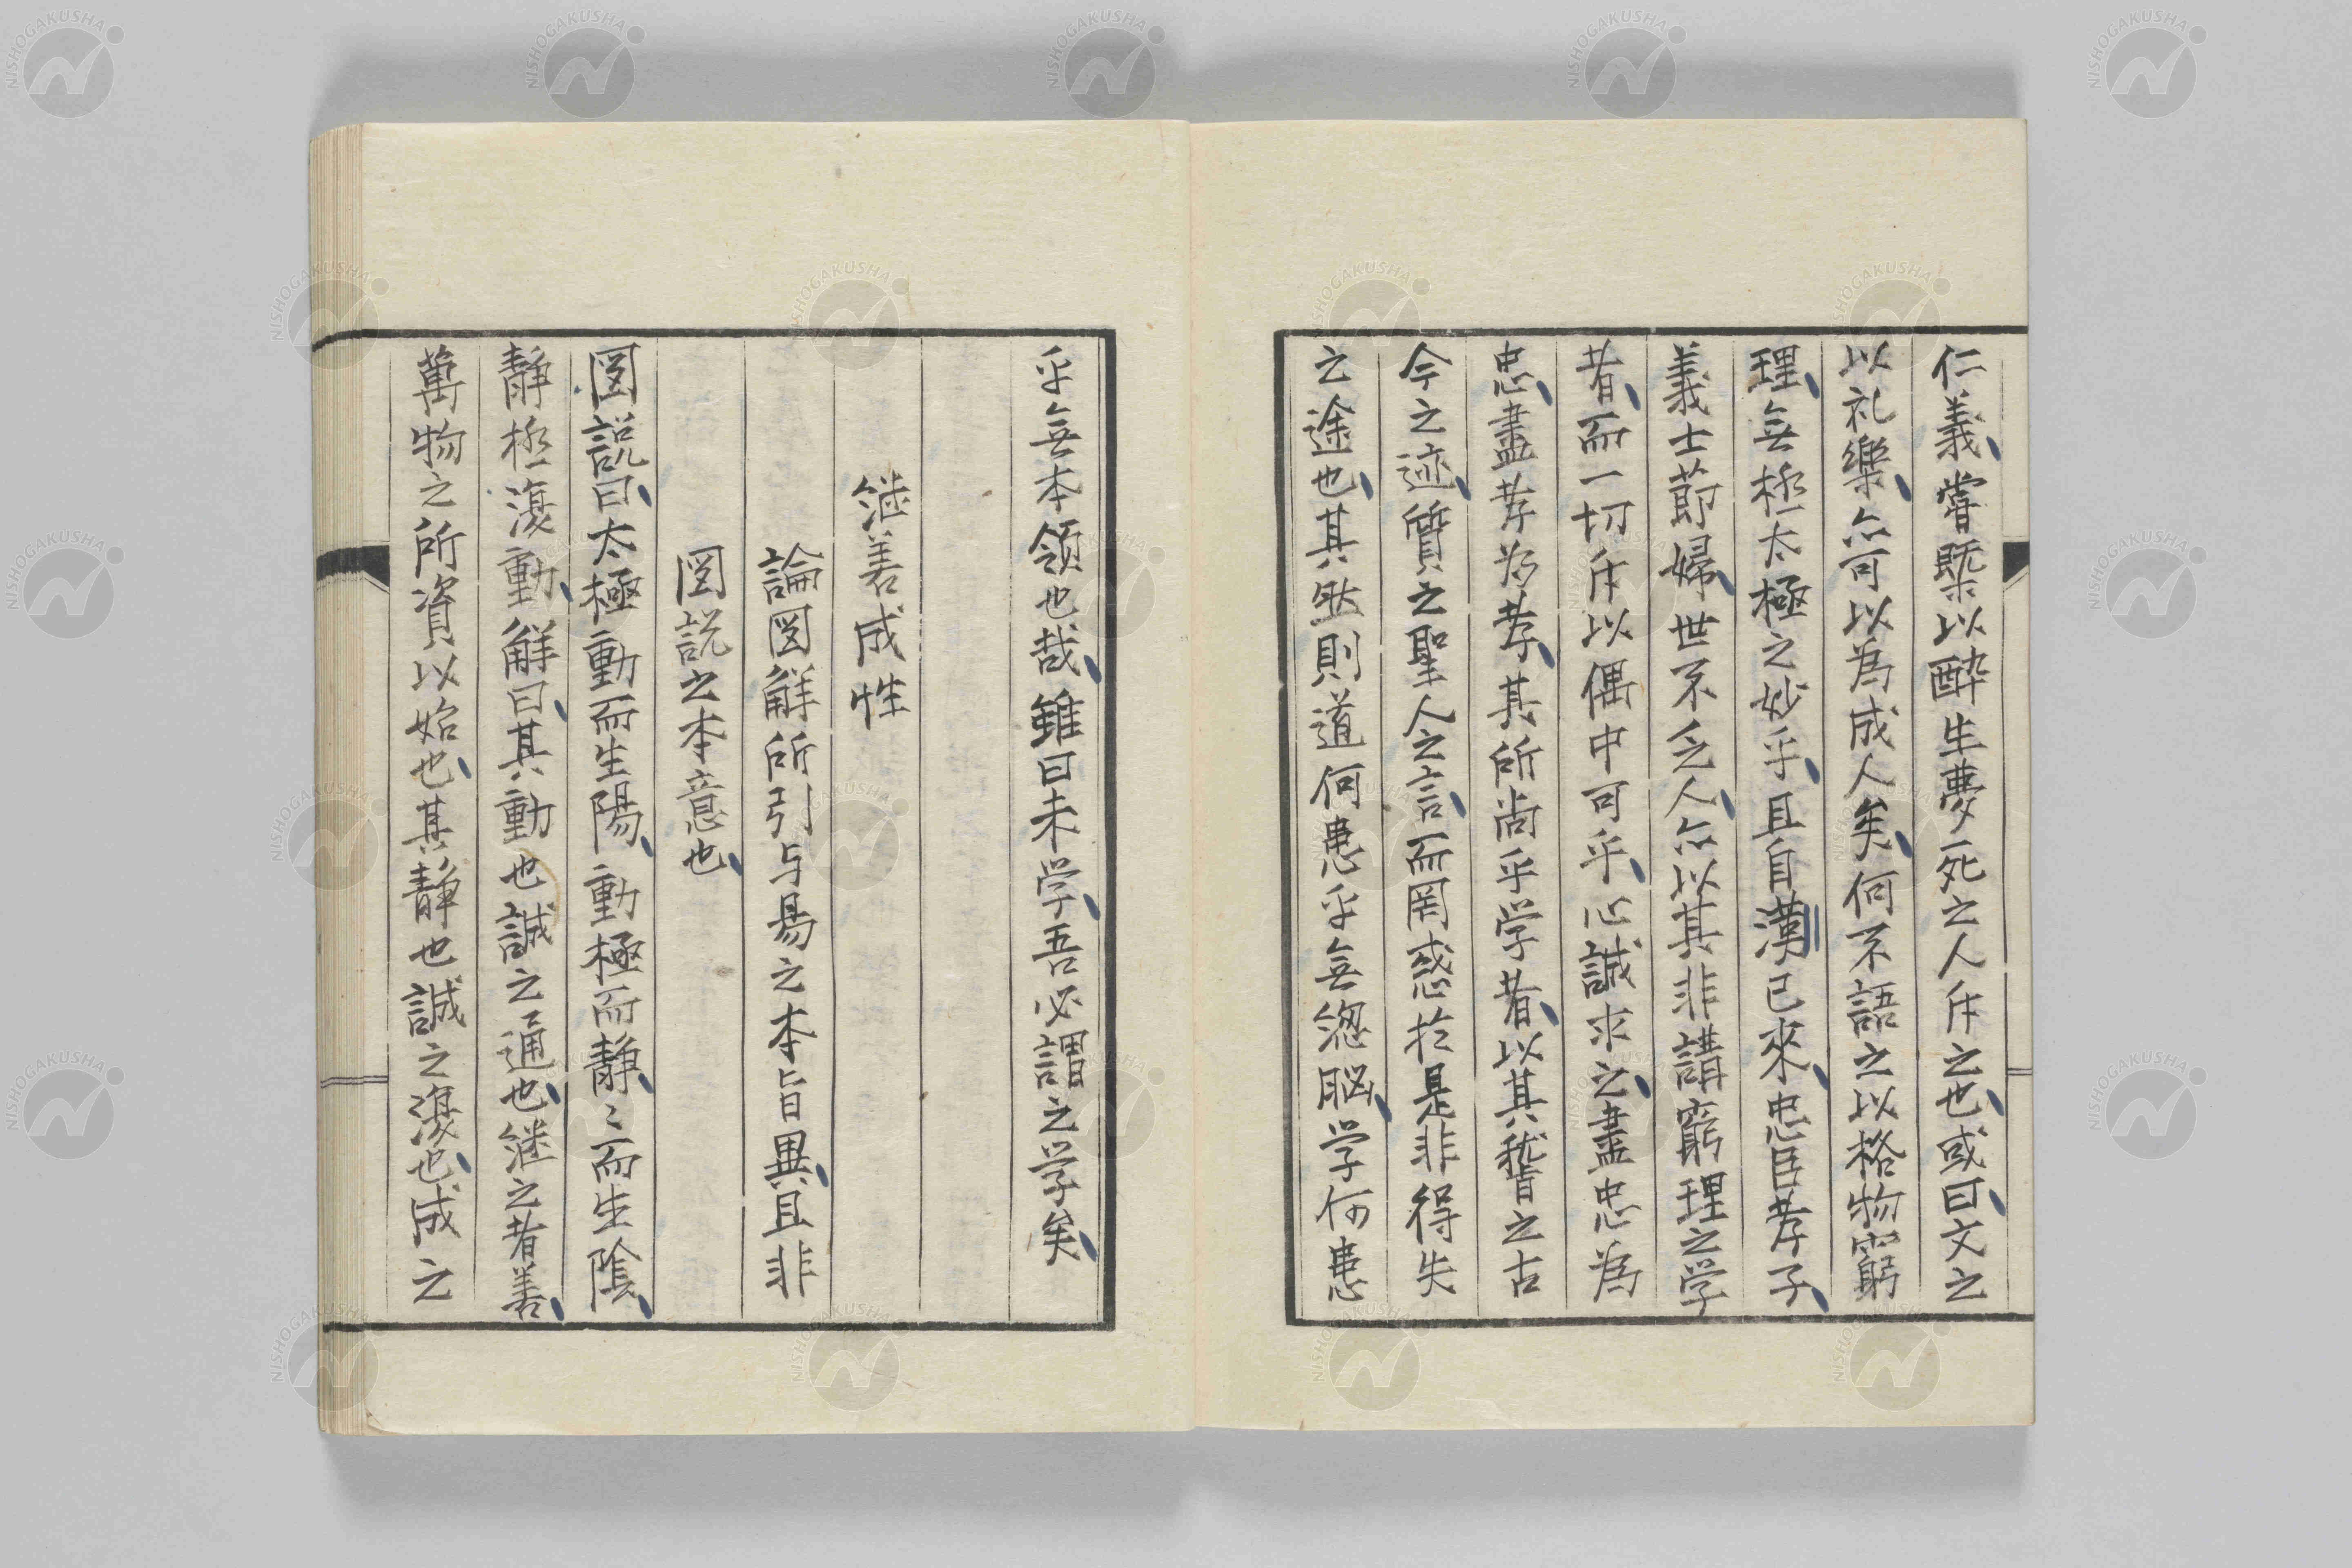 仁義嘗既以酔生夢死之人斥之也或曰文之
以礼樂亦可以為成人矣何不語之以格物窮
理無極太極之妙乎且自漢已來忠臣孝子
義士莭婦世不乏人亦以其非講窮理之学
者而一切斥以偶中可乎心誠求之盡忠為
忠盡孝為孝其所尚乎学者以其稽之古
今之迹質之聖人之言而罔惑於是非得失
之途也其然則道何患乎無惣脳学何患
乎無本領也哉雖曰未学吾必謂之学矣
継善成性
論図解所引与易之本旨異且非
図説之本意也
図説曰太極動而生陽動極而静〻而生陰
静極復動解曰其動也誠之通也継之者善
萬物之所資以始也其静也誠之復也成之
NISHOGAKUSHA